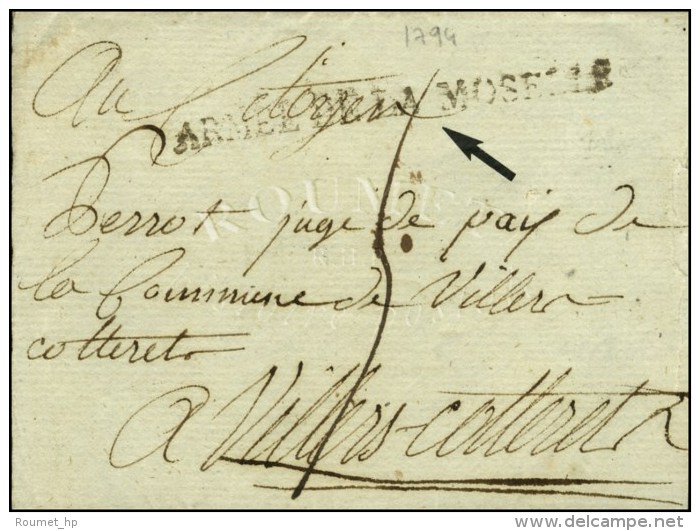 1794
Au Citoyen
ARMEE DE LA MOSELLE
Perrot juge de paix de
la Commune de Villers
cotterets
a Villers-cotterets
ROUMET
© Roumet_hp
delcampe.net